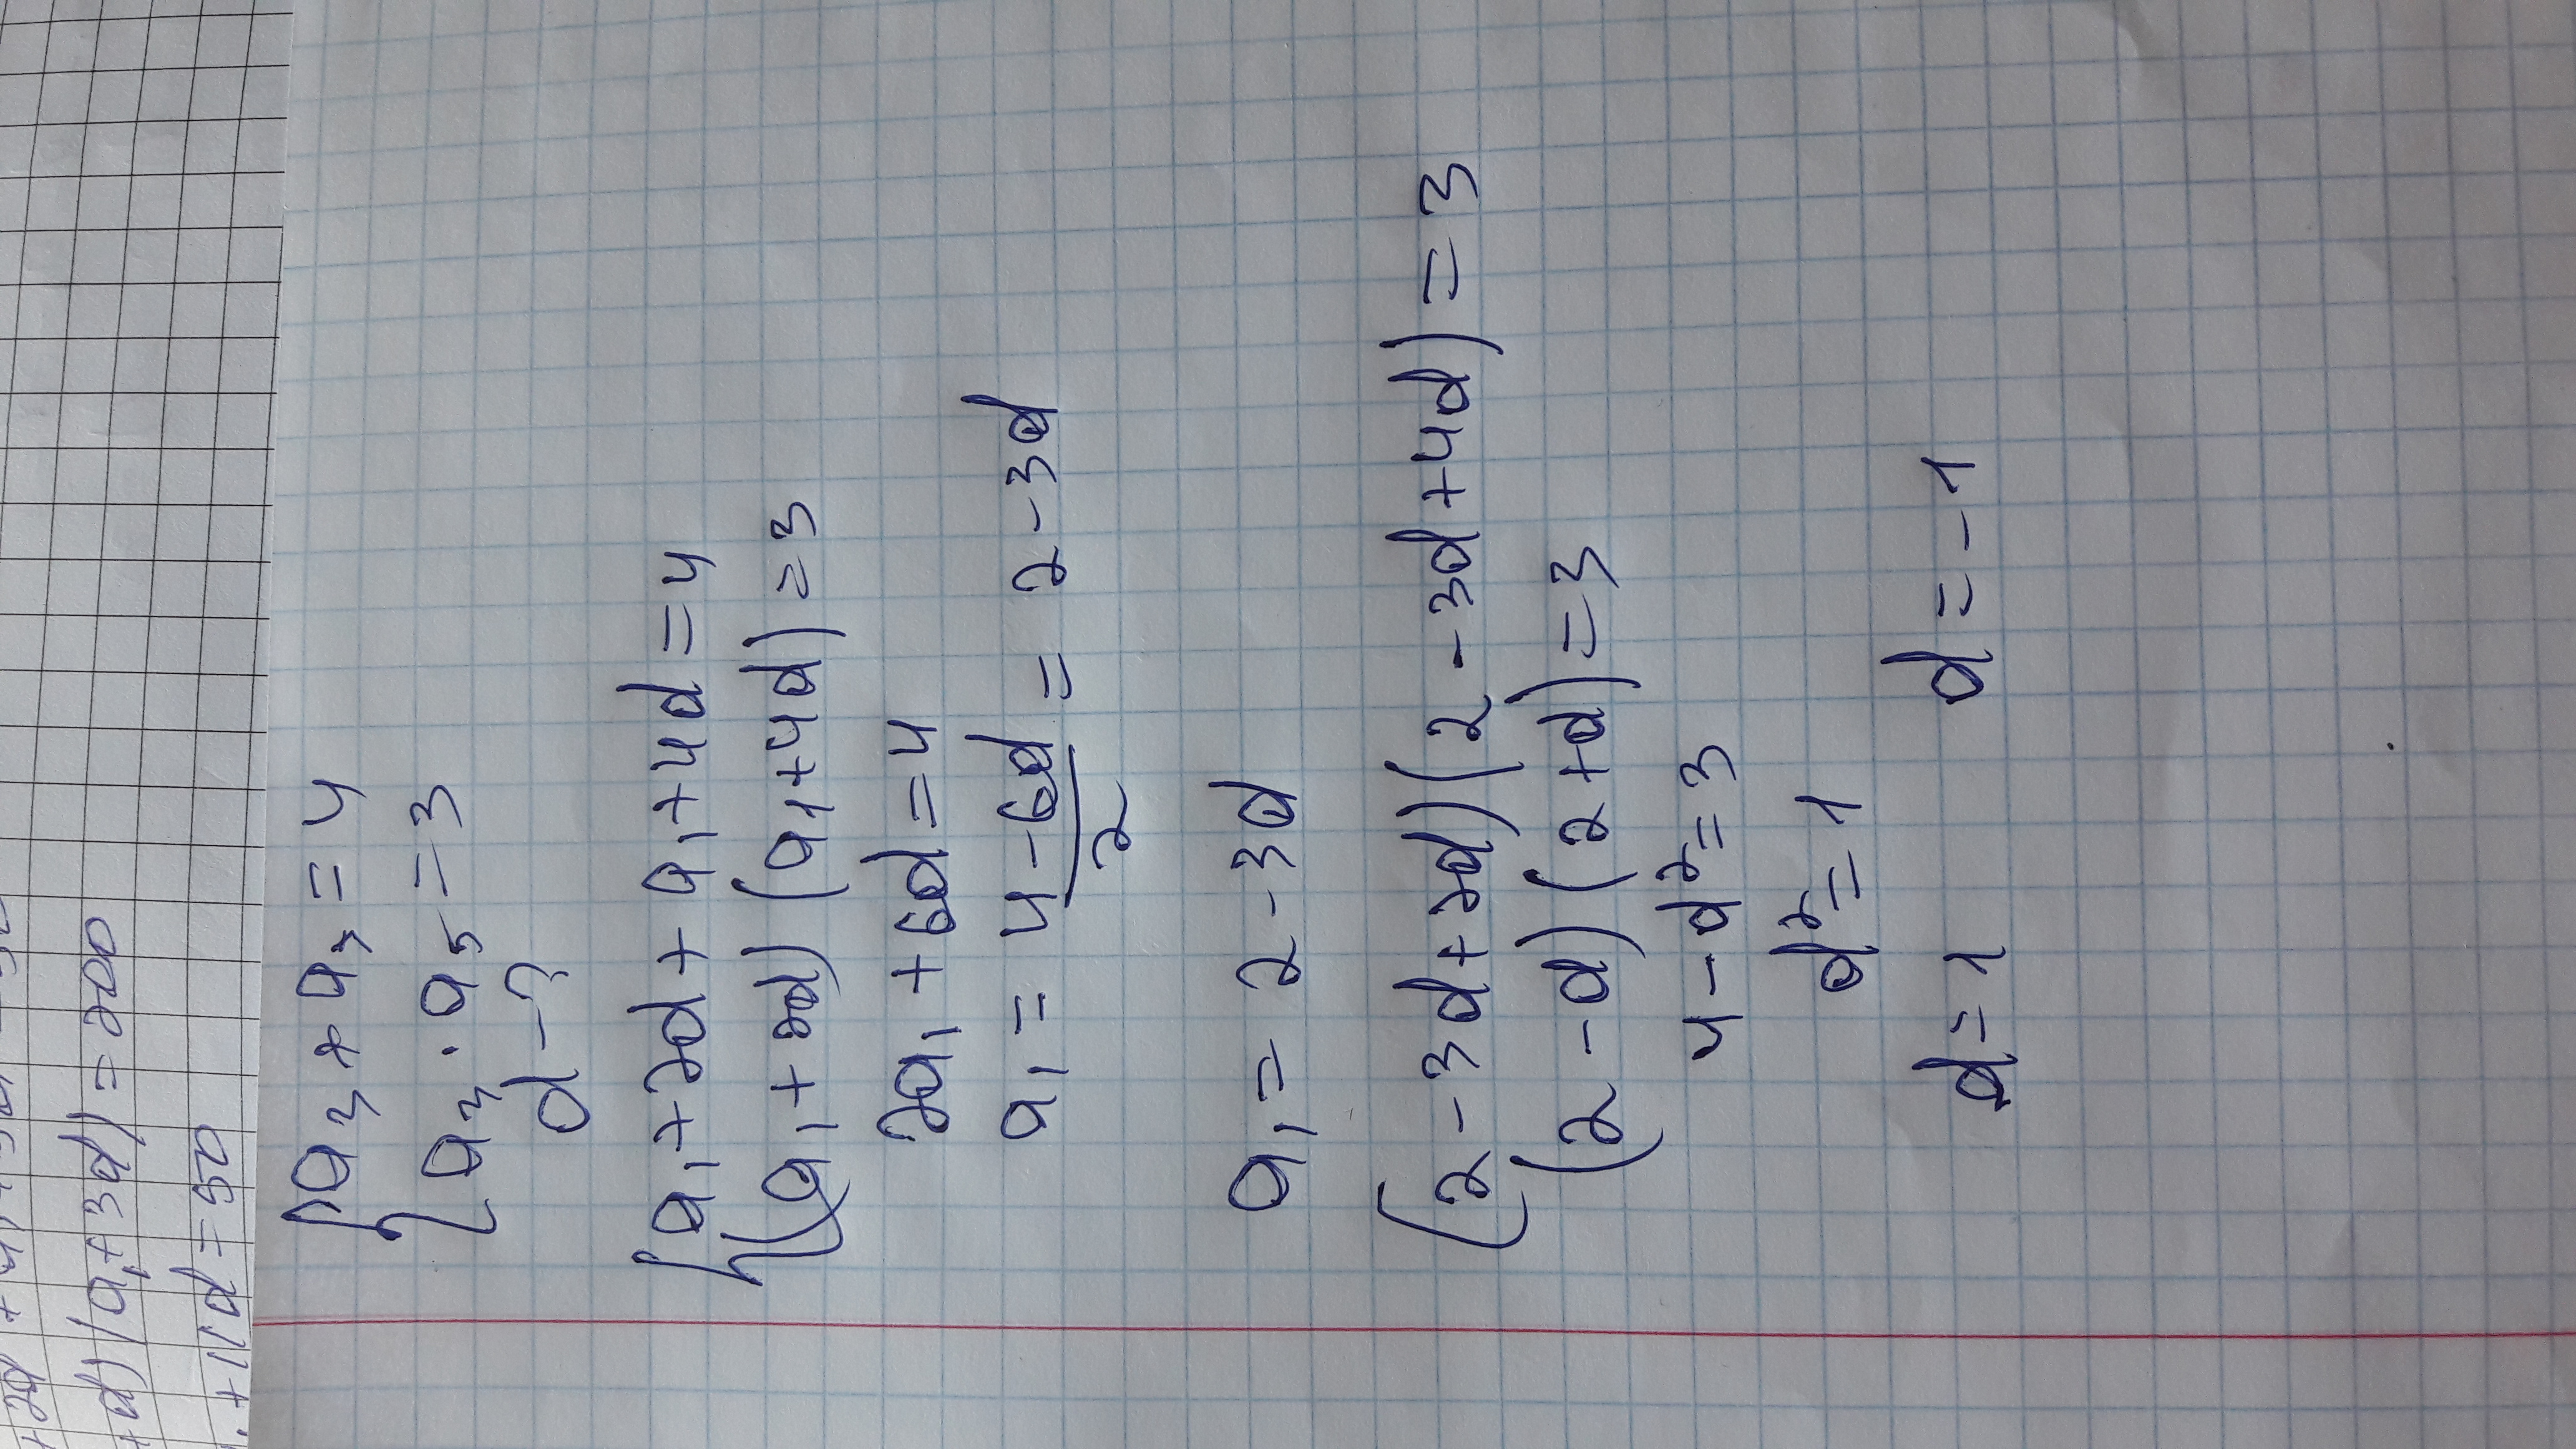 +2d +
+d)(a₁+3d)=200
+11d=50
{a₃+a₃=4
{a₃·a₅=3
d-?
{a₁+2d+a₁+4d=4
{(a₁+2d)(a₁+4d)=3
2a₁+6d=4
a₁=(4-6d)/2=2-3d
a₁=2-3d
(2-3d+2d)(2-3d+4d)=3
(2-d)(2+d)=3
4-d²=3
d²=1
d=1 d=-1